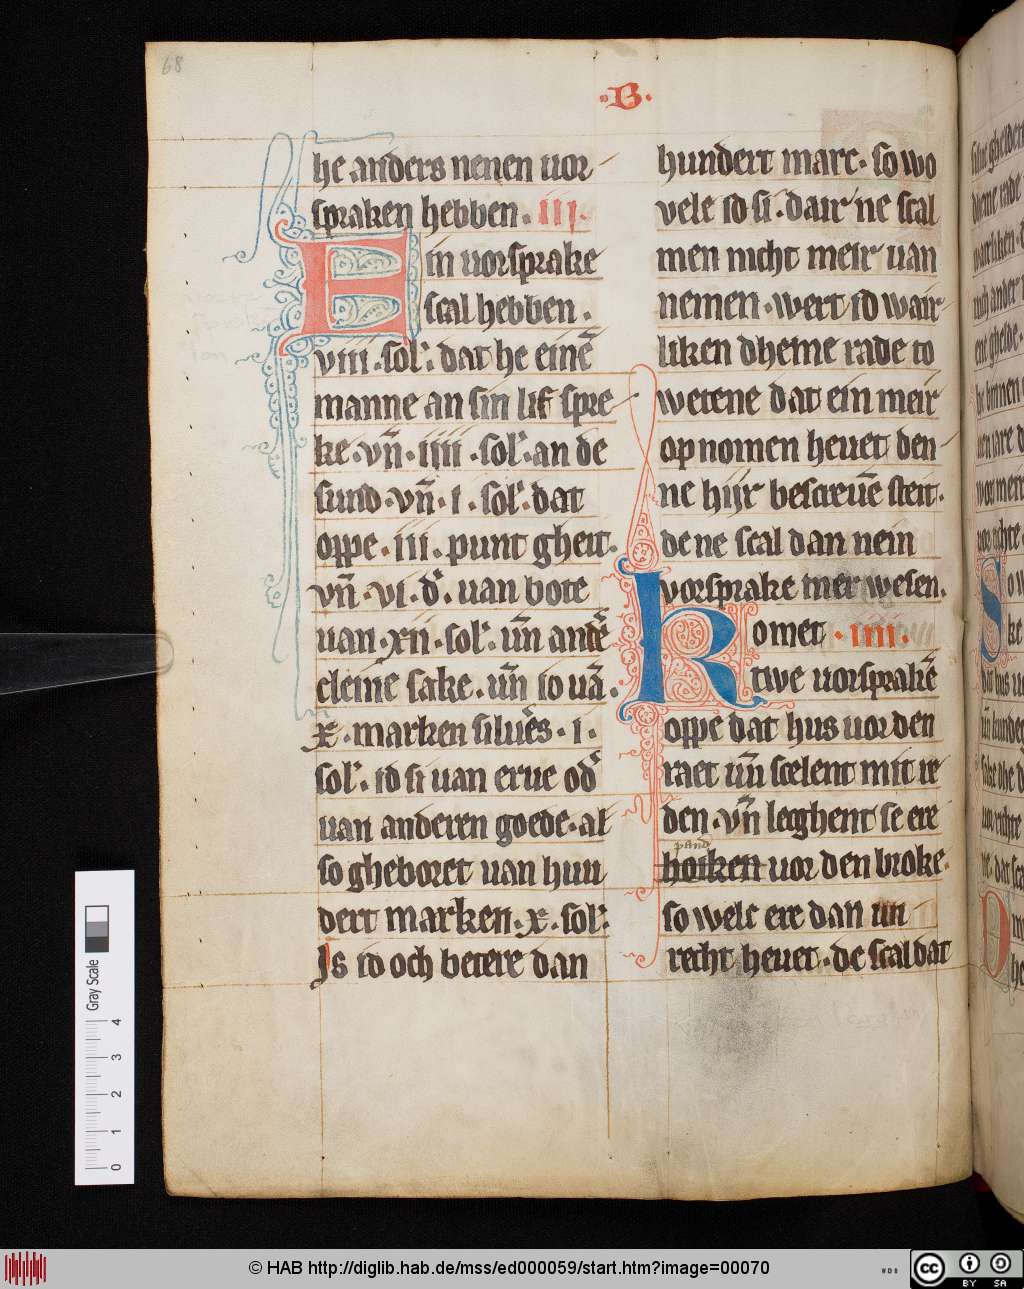 68
·B·
he anders nenen uor
spraken hebben. III.
EIn uorsprake
scal hebben.
viii. sol'. dat he einē
manne an sin lif spre
ke. vn̄. iiii. sol'. an de
sund. vn̄. i. sol'. dat
oppe. iii. punt gheit.
vn̄. vi. d'. uan bote
uan. xii. sol'. un̄ andē
cleine sake. un̄ io uā.
x. marken siluēs. i.
sol'. id si uan erue od'
uan anderen goede. al
so gheboret uan hun
dert marken. x. sol'.
Is id och betere dan
hundert marc. so wo
vele id si. dair ne scal
men nicht meir uan
nemen. wert id wair
liken dheme rade to
wetene dat ein meir
op nomen heuet den
ne hijr bescreuē steit.
de ne scal dan nein
vorsprake mer wesen.
Komet. IIII.
twe uorsprakē
oppe dat hus uor den
raet un̄ scelent mit re
den. vn̄ leeghent se ere
pand
hoiken uor den broke.
so welc ere dan un
recht heuet. de scal dat
Gray Scale
4
3
2
1
0
© HAB http://diglib.hab.de/mss/ed000059/start.htm?image=00070
WDB
cc BY SA